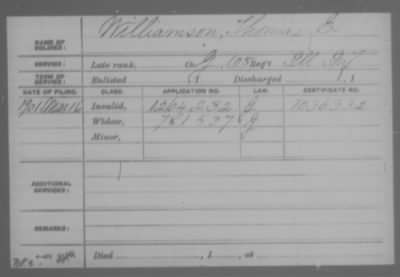 NAME OF SOLDIER: Williamson, Thomas E.
SERVICE: Late rank, Co. G, 105 Reg't Ill Inf
TERM OF SERVICE: Enlisted , 1 Discharged , 1
DATE OF FILING. CLASS. APPLICATION NO. LAW. CERTIFICATE NO.
1901 Mar 16 Invalid, 1264232 G 1036332
Widow, 781537 G
Minor,
ADDITIONAL SERVICES:
REMARKS:
Died , 1 , at